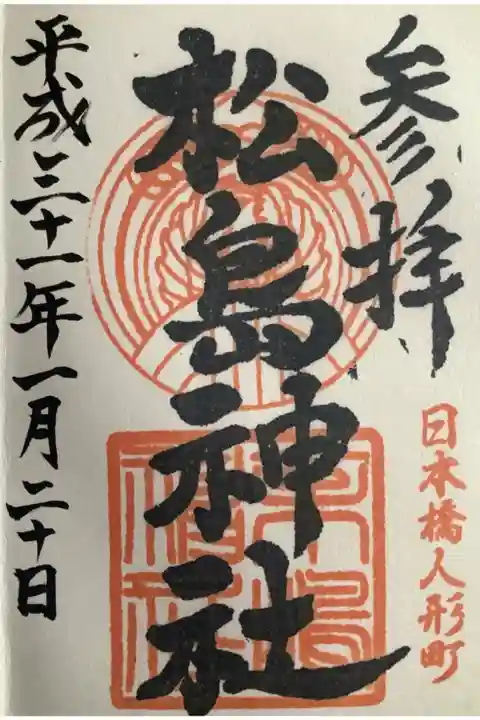 参拝
日本橋人形町
松島神社
平成三十一年一月二十日